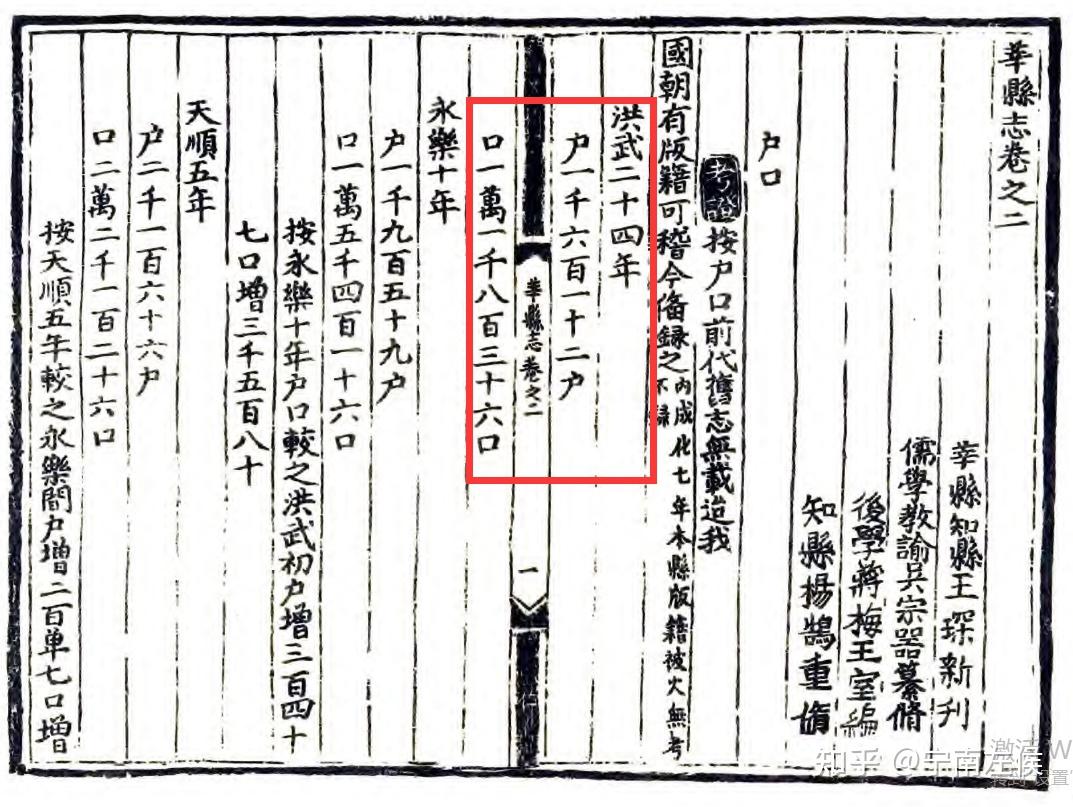 莘縣志卷之二
莘縣知縣王琛新刋
儒學教諭吳宗器纂脩
後學蔣梅王室編
知縣楊鵠重脩
户口
考證按户口前代舊志無載迨我
國朝有版籍可稽今备録之内成化七年本縣版籍被火無考不録
洪武二十四年
户一千六百一十二户
莘縣志卷之二
一
口一萬一千八百三十六口
永樂十年
户一千九百五十九户
口一萬五千四百一十六口
按永樂十年户口較之洪武初户增三百四十
七口增三千五百八十
天順五年
户二千一百六十六户
口二萬二千一百二十六口
按天順五年較之永樂間户增二百单七口增
知乎 @宁南左侯
激活 W
转到"设置"